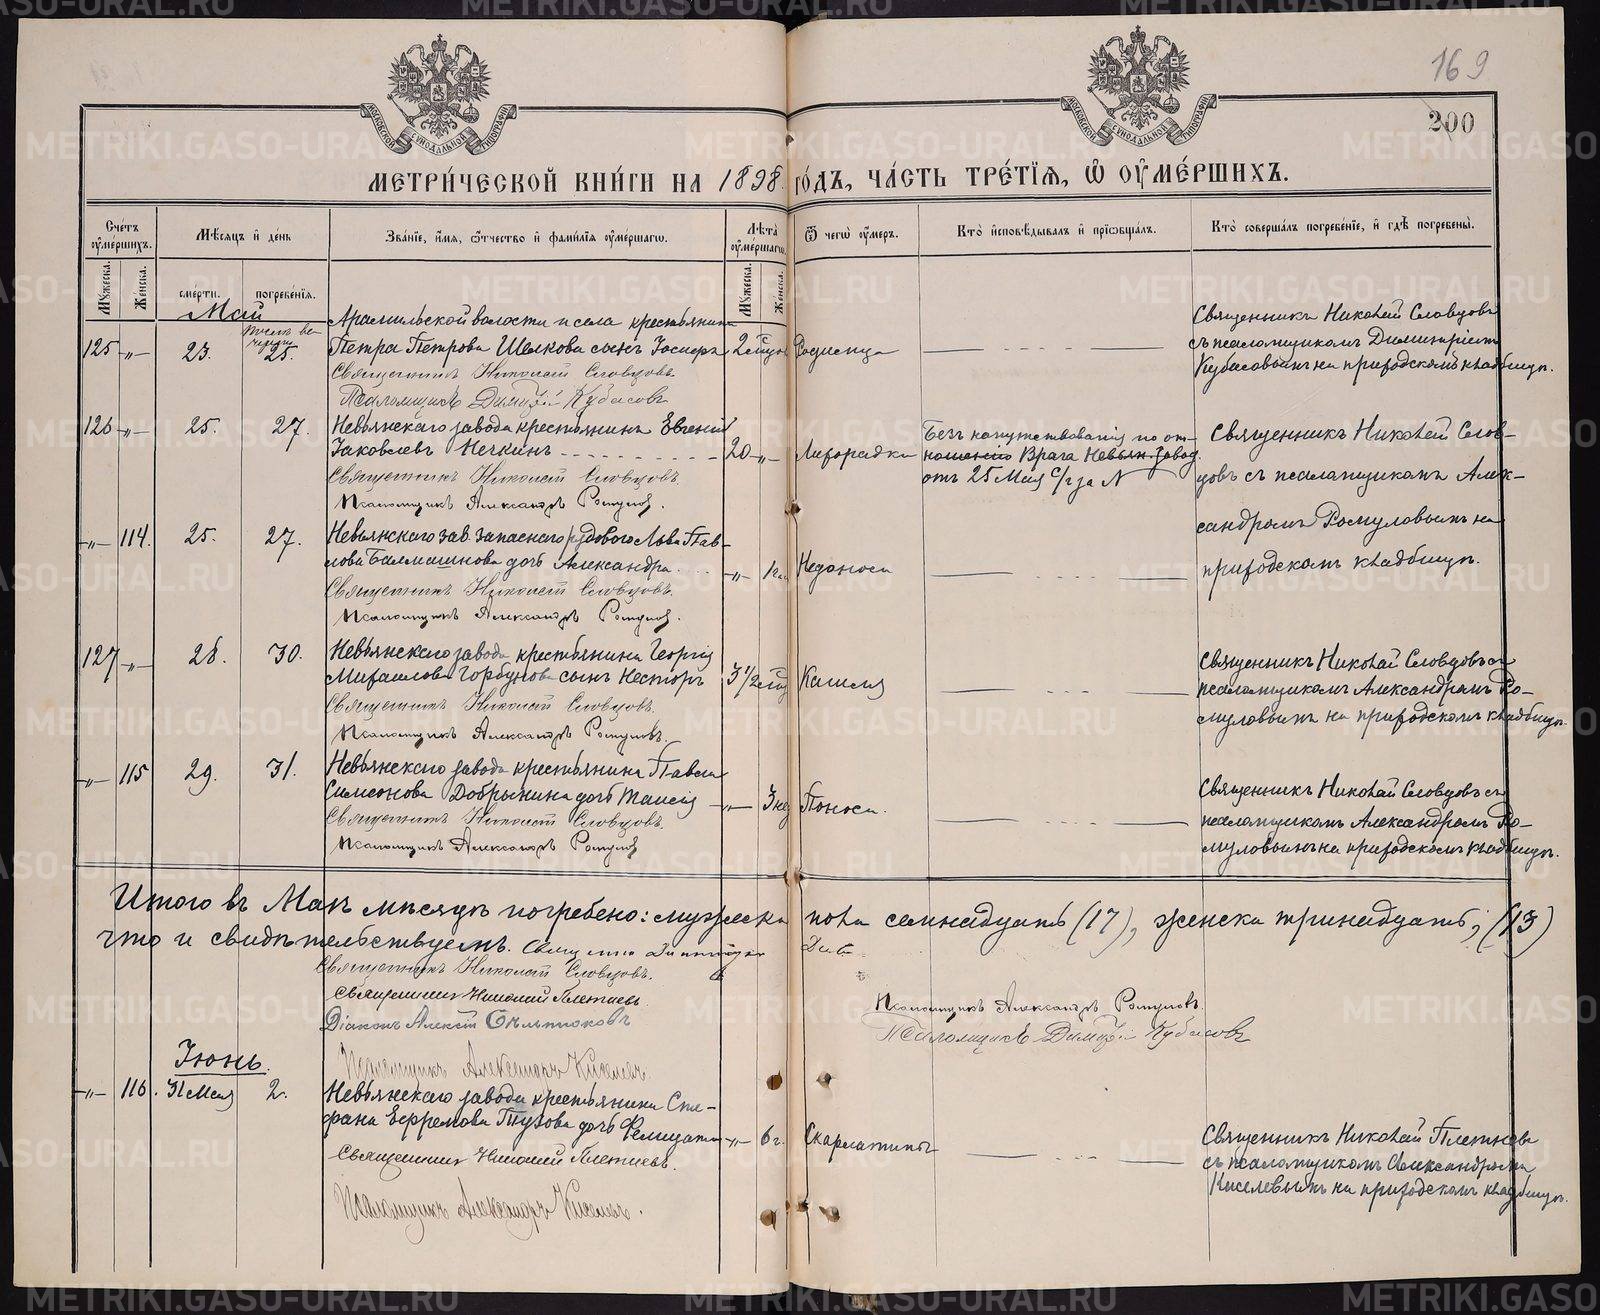 169
200
МЕТРИ́ЧЕСКОЙ КНИ́ГИ НА 1898 ГО́ДЪ, ЧА́СТЬ ТРЕ́ТІѦ, Ѽ ОУ҆МЕ́РШИХЪ.
МОСКОВСКОЙ СѴНОДАЛЬНОЙ ТИПОГРАФІИ
МОСКОВСКОЙ СѴНОДАЛЬНОЙ ТИПОГРАФІИ
Сче́тъ оу҆ме́ршихъ.
Мѣ́сяцъ и҆ де́нь
Зва́ніе, и҆́мя, ѻ҆́тчество и҆ фами́лія оу҆ме́ршагѡ.
Лѣ́та оу҆ме́ршагѡ.
Ѿ чегѡ̀ оу҆́меръ.
Кто̀ и҆сповѣ́дывалъ и҆ прїѡбща́лъ.
Кто̀ соверша́лъ погребе́ніе, и҆ гдѣ̀ погребены̀.
Мꙋ́жеска.
Же́нска.
сме́рти.
погребе́нія.
Мꙋ́жеска.
Же́нска.
Май
125 -„- 23. 25.
Арамильской волости и села крестьянина
Петра Петрова Шелкова сынъ
Священникъ Николай Словцовъ
Псаломщикъ Димитрій Кубасовъ
Родимца
Священникъ Николай Словцовъ
съ псаломщикомъ Димитріемъ
Кубасовымъ на приходскомъ кладбищѣ.
126 -„- 25. 27.
Невьянскаго завода крестьянинъ Евгеній
Іаковлевъ Нечкинъ
20 -„-
Священникъ Николай Словцовъ.
Псаломщикъ Александръ Ромулов.
Лихорадки
Безъ напутствованія по от-
ношенію Врача Невьян. Завод.
отъ 25 Мая с/г за №
Священникъ Николай Слов-
цовъ съ псаломщикомъ Алек-
сандромъ Ромуловымъ на
приходскомъ кладбищѣ.
-„- 114. 25. 27.
Невьянскаго зав. запаснаго рядового Льва Пав-
лова Балмашнова дочь Александра
-„- 1 час
Священникъ Николай Словцовъ.
Псаломщикъ Александръ Ромулов.
Недоноса
127 -„- 28. 30.
Невьянскаго завода крестьянина Георгія
Михаилова Горбунова сынъ Несторъ
3 1/2
Священникъ Николай Словцовъ.
Псаломщикъ Александръ Ромуловъ.
Кашля
Священникъ Николай Словцовъ съ
псаломщикомъ Александромъ Ро-
муловымъ на приходскомъ кладбищѣ.
-„- 115 29. 31.
Невьянскаго завода крестьянина Павла
Симеонова Добрынина дочь Таисія
-„- 3 нед
Священникъ Николай Словцовъ.
Псаломщикъ Александръ Ромулов
Поноса.
Священникъ Николай Словцовъ съ
псаломщикомъ Александромъ Ро-
муловымъ на приходскомъ кладбищѣ.
Итого въ Маѣ мѣсяцѣ погребено: мужеска пола семнадцать (17), женска тринадцать; (13)
что и свидѣтельствуемъ.
Священникъ Николай Словцовъ.
Священникъ Николай Плетневъ.
Діаконъ Алексій
Псаломщикъ Александръ Киселевъ.
Псаломщикъ Александръ Ромуловъ
Псаломщикъ Димитрій Кубасовъ
Іюнь.
-„- 116. 31 Мая 2.
Невьянскаго завода крестьянина Сте-
фана Ефремова Тухова дочь Фелицата
-„- 6 г.
Священникъ Николай Плетневъ.
Псаломщикъ Александръ Киселевъ.
Скарлатины
Священникъ Николай Плетневъ
съ псаломщикомъ Александромъ
Киселевымъ на приходскомъ кладбищѣ.
METRIKI.GASO-URAL.RU